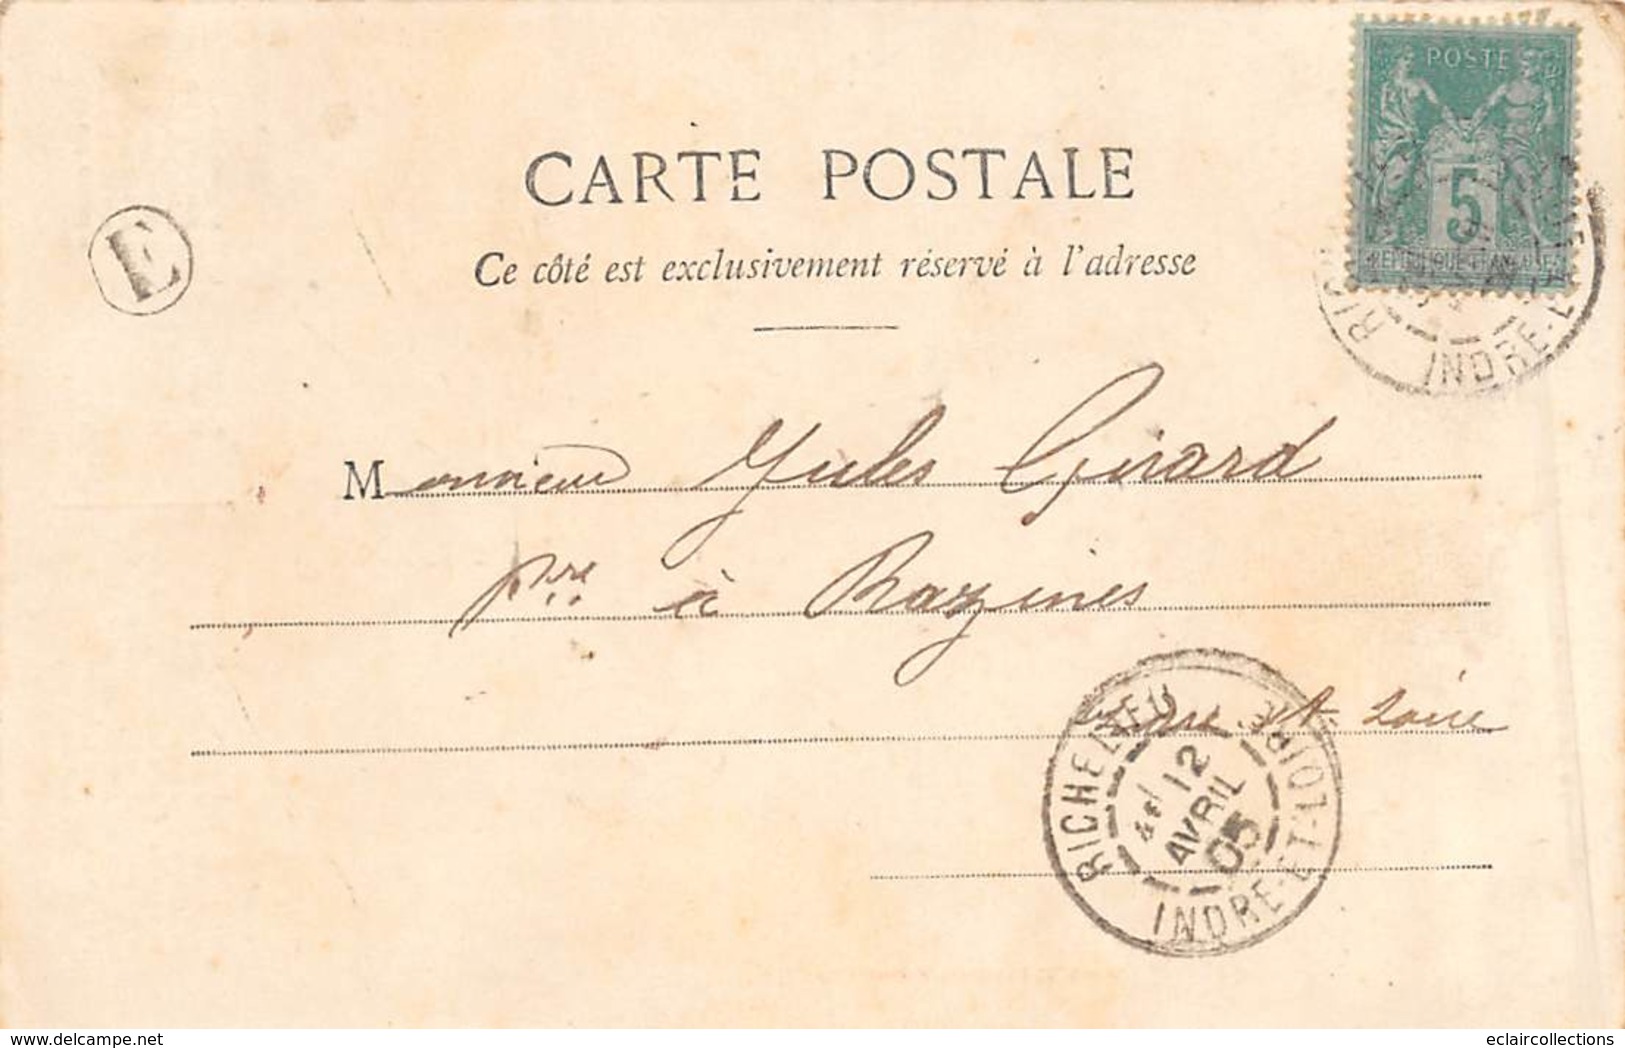 POSTE
5
REPUBLIQUE FRANÇAISE
CARTE POSTALE
E
Ce côté est exclusivement réservé à l'adresse
INDRE-ET
Monsieur Jules Girard
à Razines
Indre et Loire
RICHELIEU
12
AVRIL
05
INDRE-ET-LOIRE
delcampe.net
eclaircollections